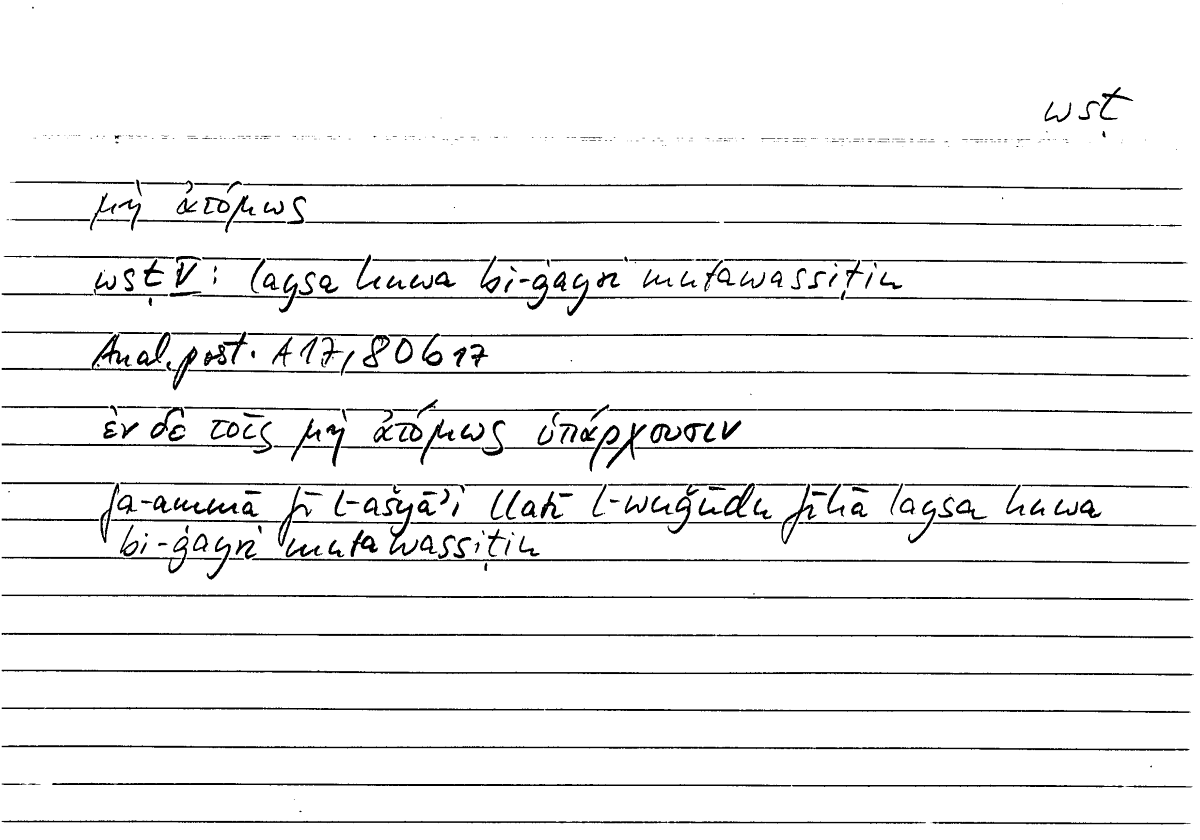 wsṭ
μὴ ἀτόμως
wsṭ V: laysa huwa bi-ġayri mutawassiṭin
Anal. post. A 17, 80 b 17
ἐν δὲ τοῖς μὴ ἀτόμως ὑπάρχουσιν
fa-ammā fī l-ašyāʾi llatī l-wuǧūdu fīhā laysa huwa
bi-ġayri mutawassiṭin